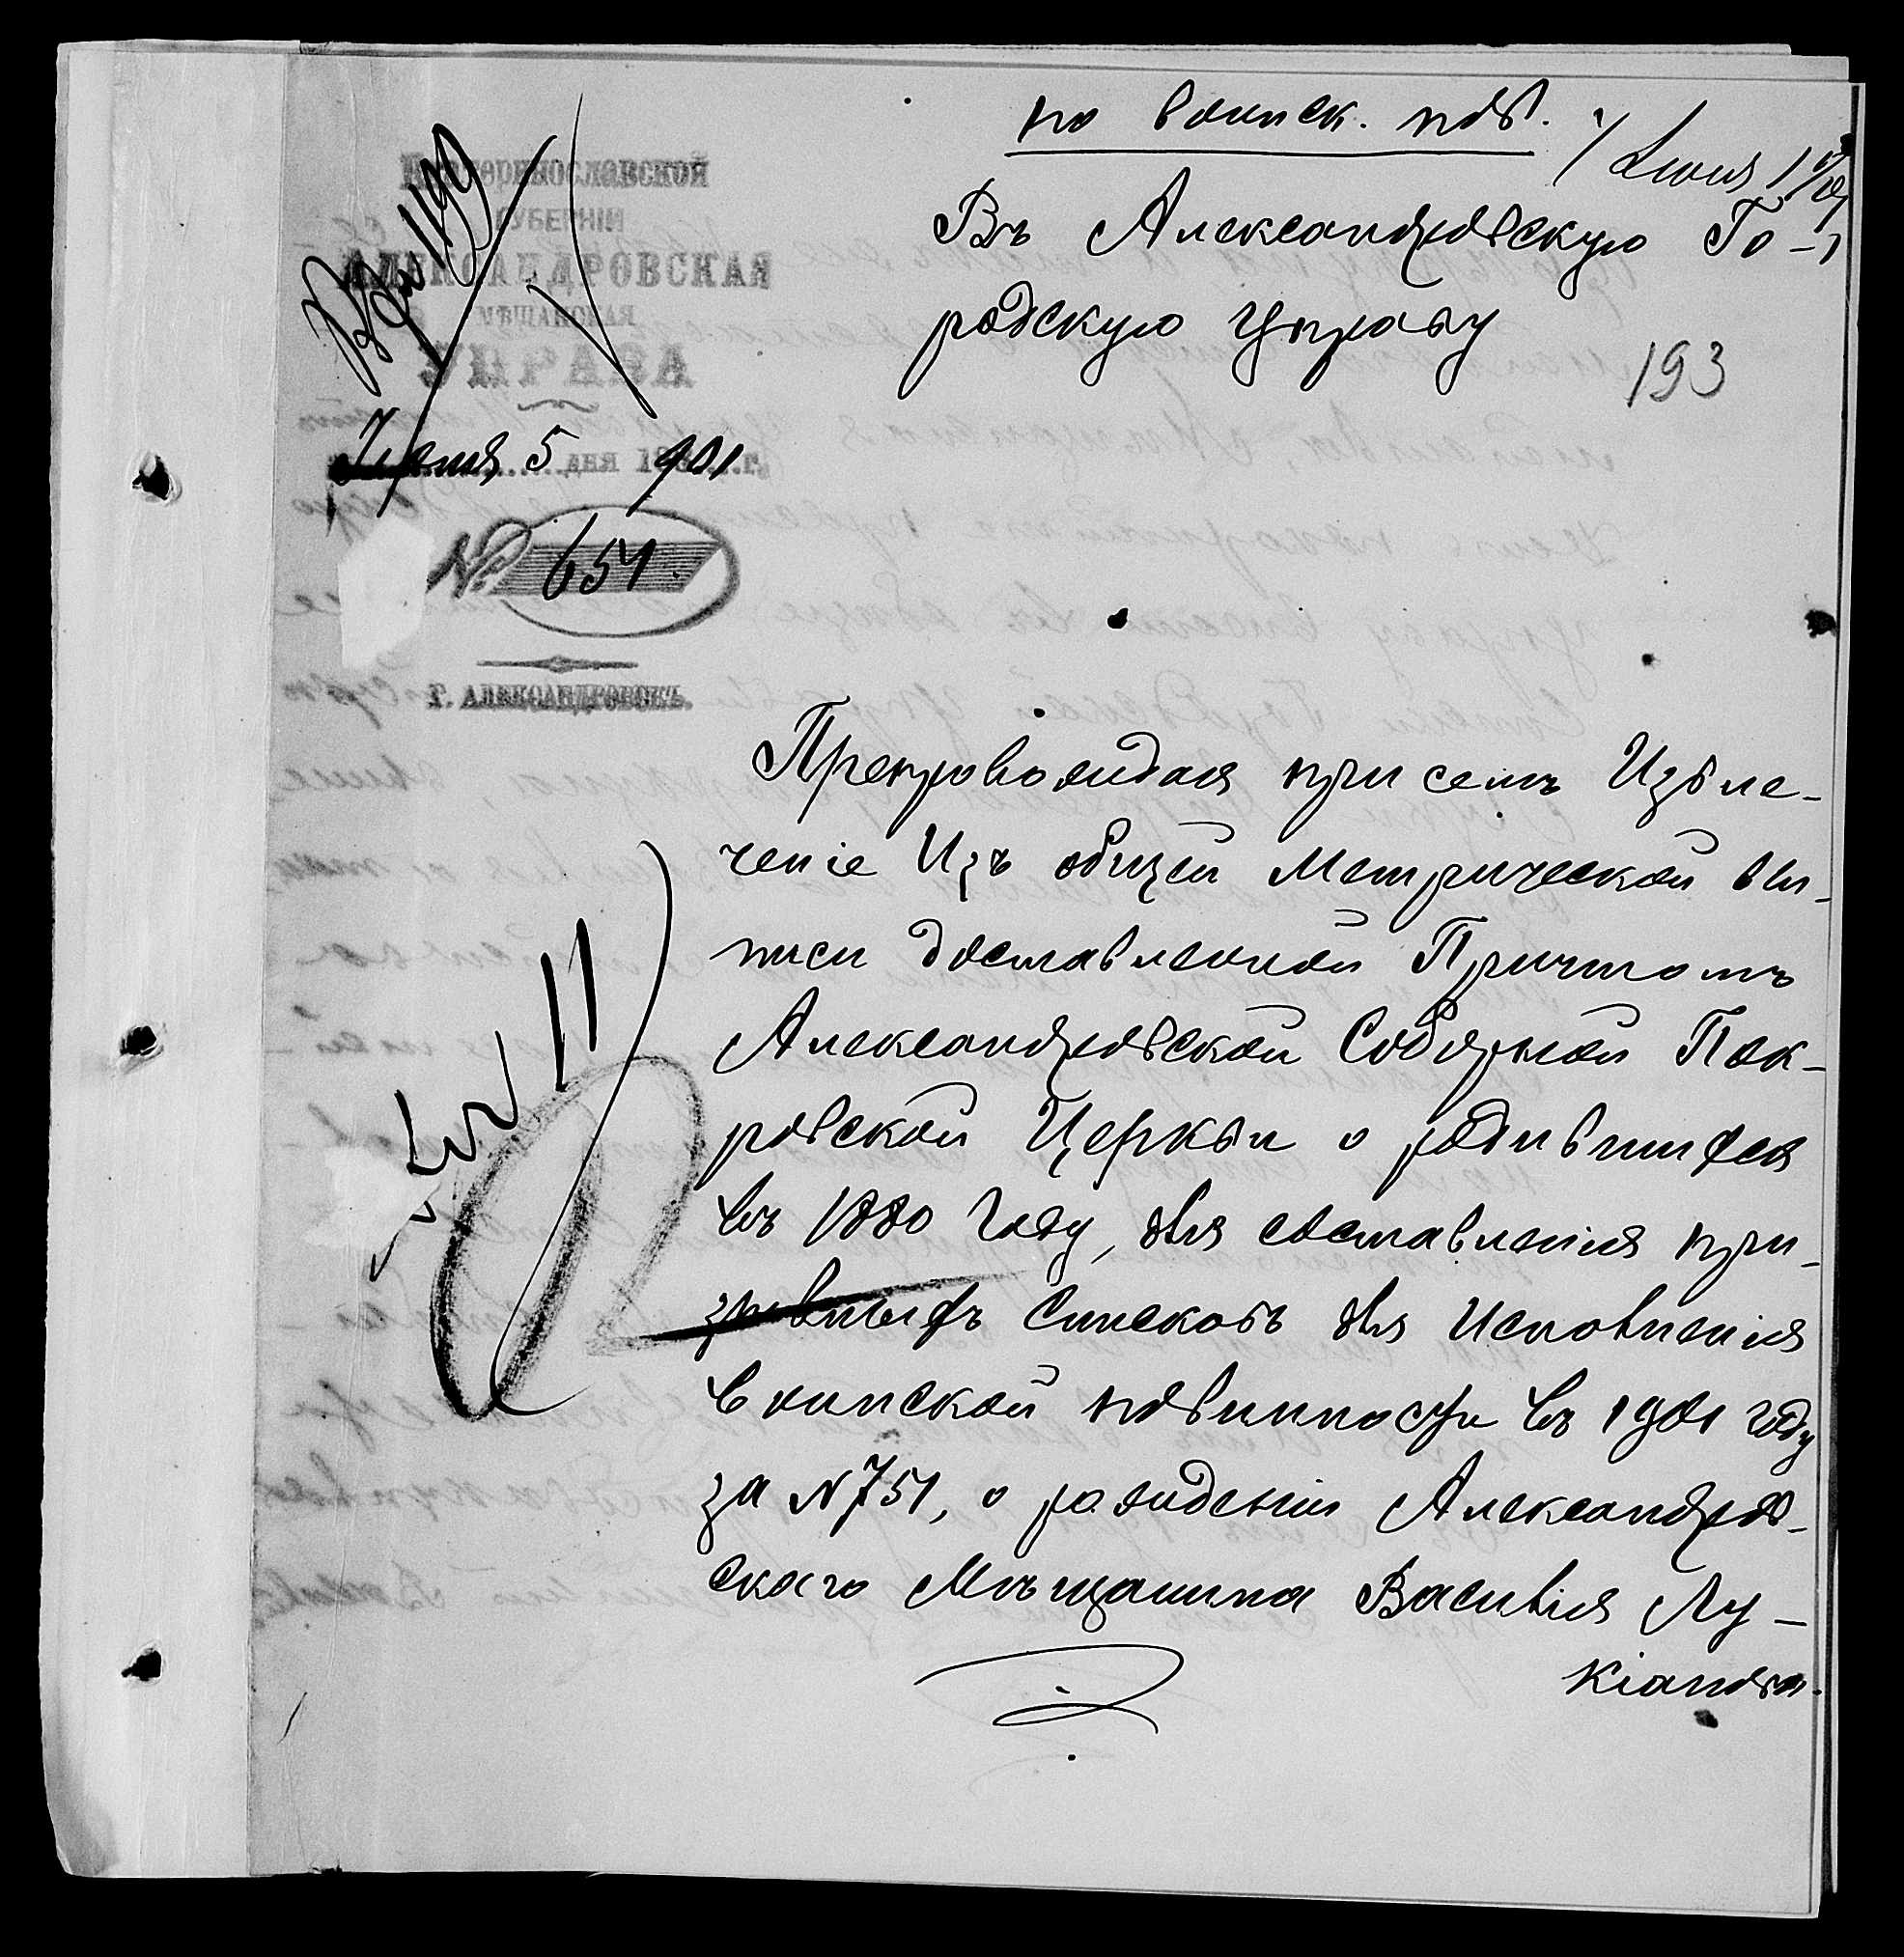 по воинск. пов.
Екатеринославской
ГУБЕРНІИ
АЛЕКСАНДРОВСКАЯ
МѢЩАНСКАЯ
УПРАВА
5 дня 1901 г.
№ 651.
Г. АЛЕКСАНДРОВСКЪ.
Въ Александровскую Го-
родскую Управу
193
Препровождая при семъ Извле-
ченіе Изъ общей Метрической вы-
писи доставленной Причтомъ
Александровской Соборной Пок-
ровской Церкви о родившихся
въ 1880 году, для составленія при-
зывныхъ Списковъ для Исполненія
воинской повинности въ 1901 году
за № 751, о рождении Александров-
скаго Мѣщанина Василія Лу-
кіанова.